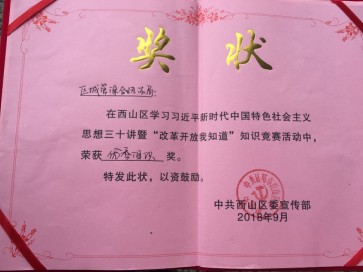 奖 状
区城管综合执法局:
在西山区学习习近平新时代中国特色社会主义
思想三十讲暨“改革开放我知道”知识竞赛活动中,
荣获 优秀组织 奖。
特发此状,以资鼓励。
中共西山区委宣传部
2018年9月